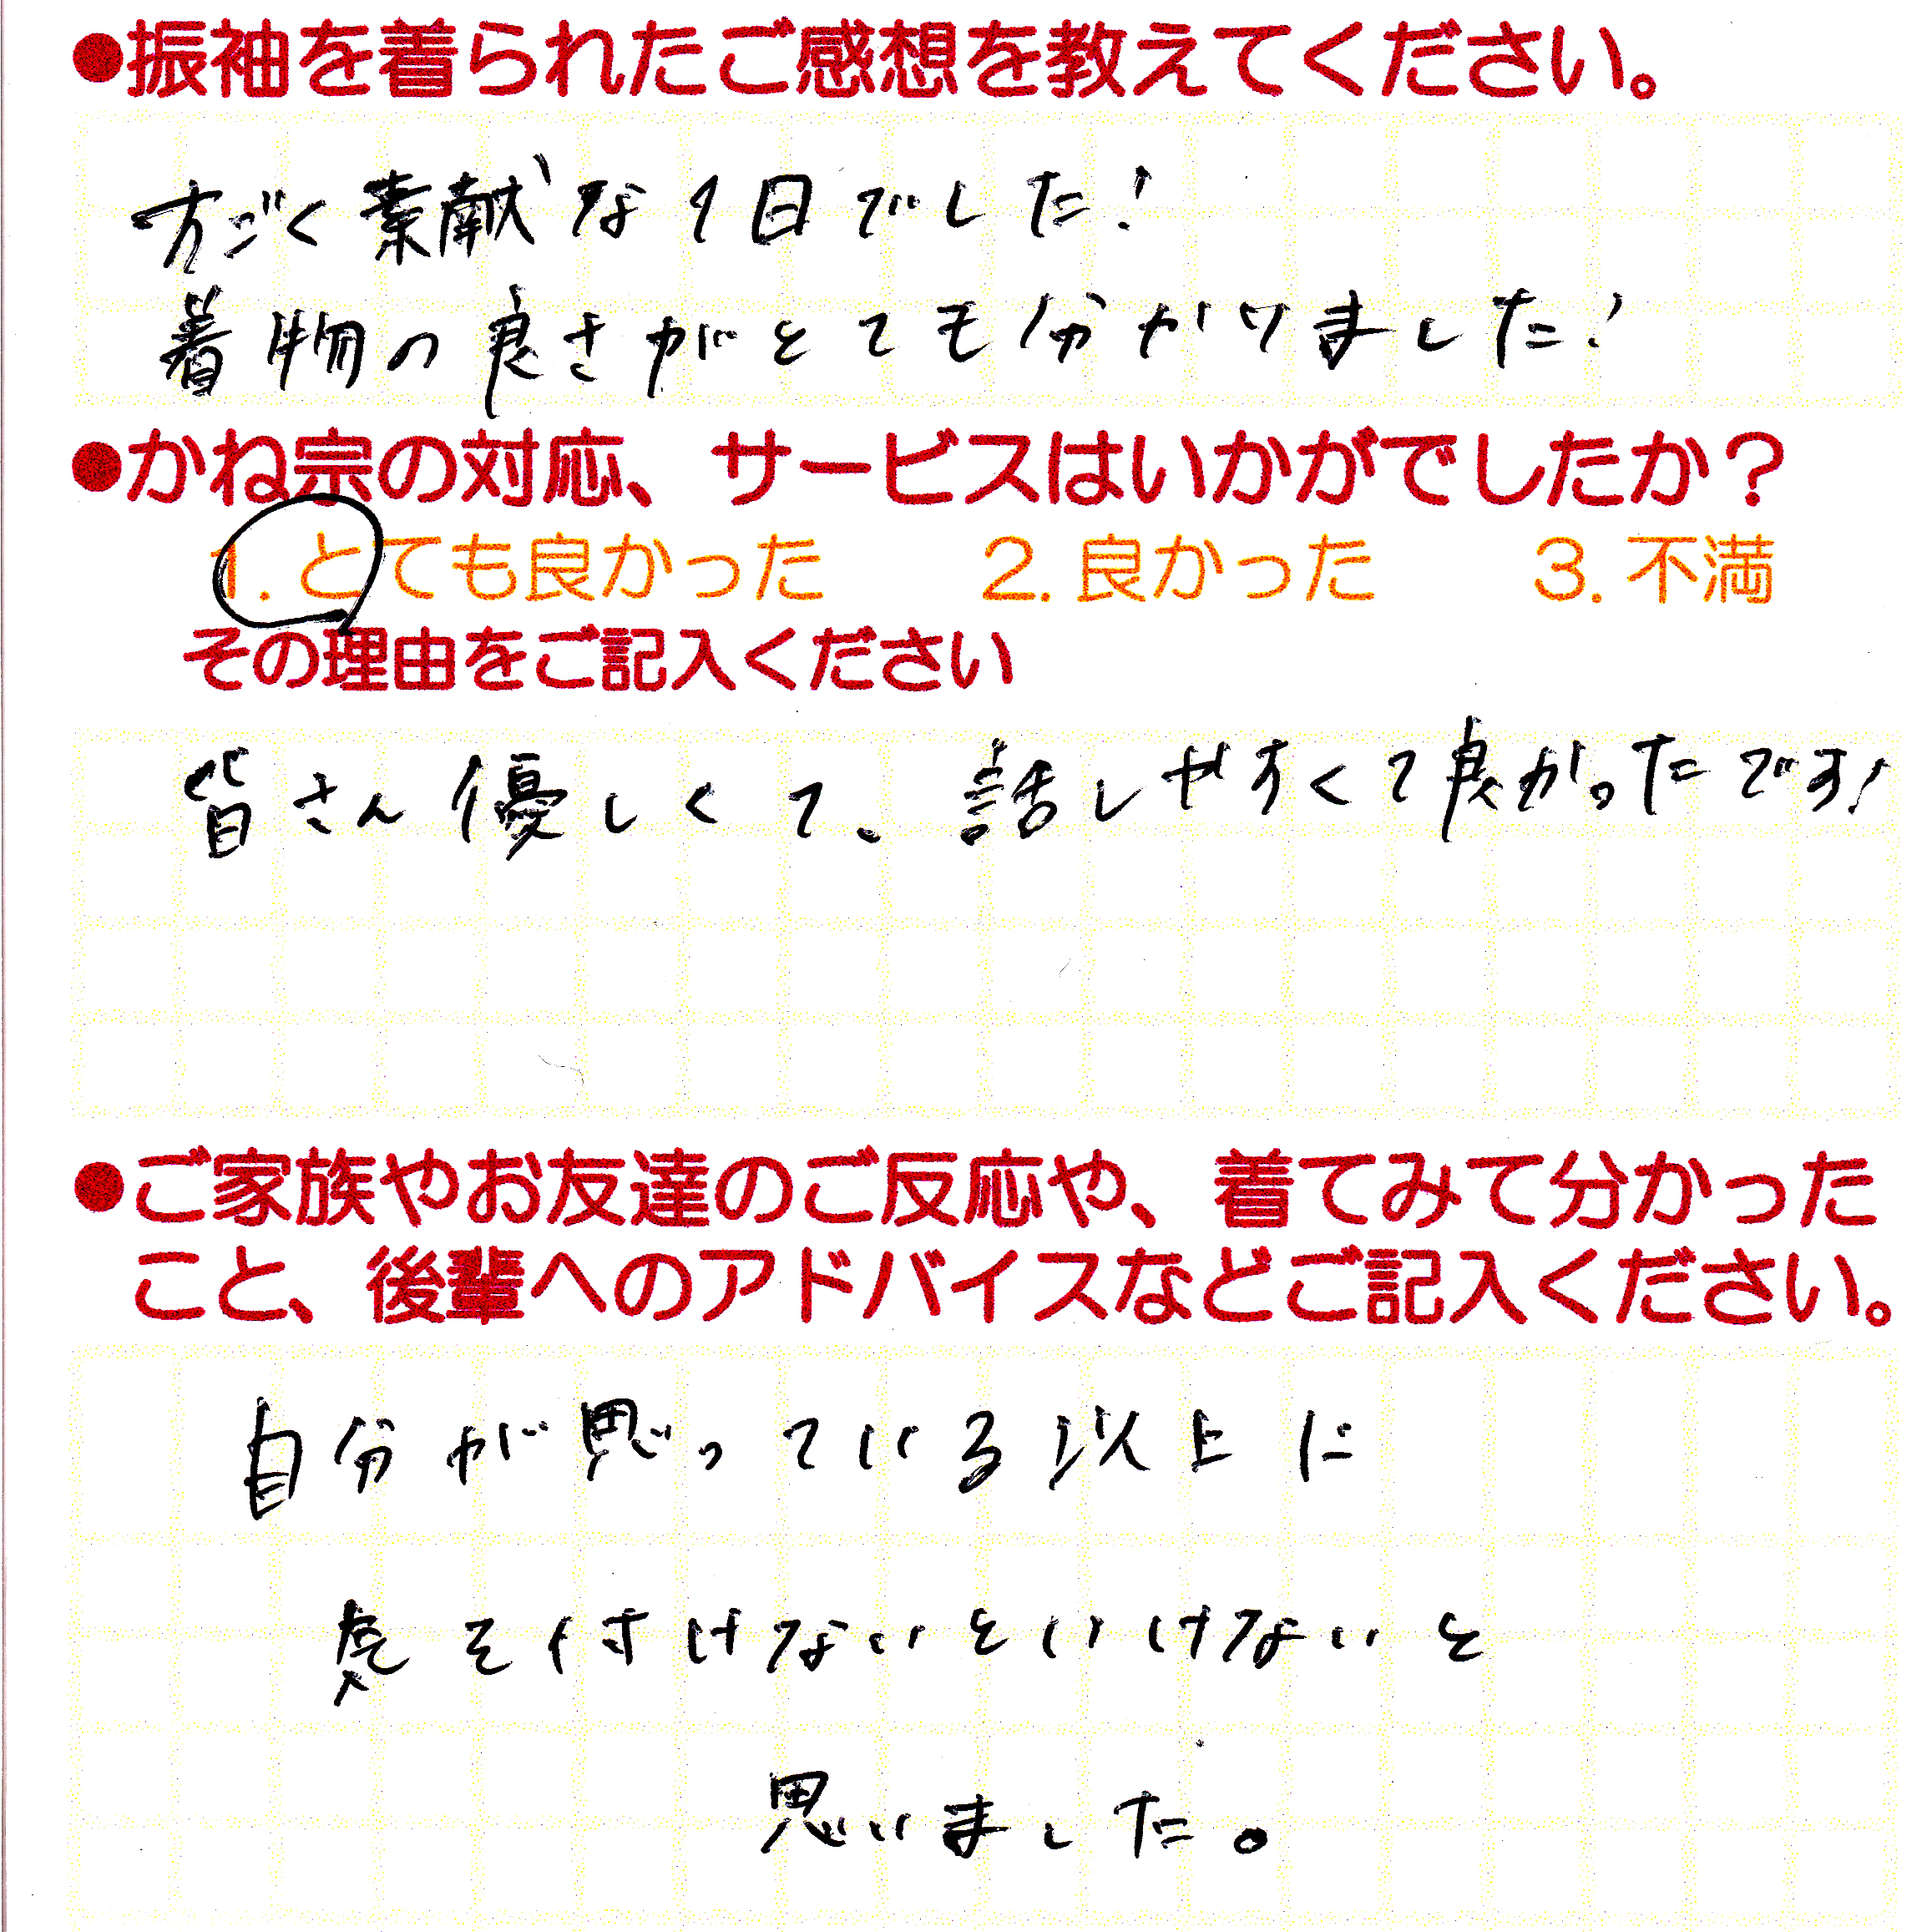 ●振袖を着られたご感想を教えてください。
すごく素献な1日でした!
着物の良さがとても分かりました!
●かね宗の対応、サービスはいかがでしたか？
1.とても良かった 2.良かった 3.不満
その理由をご記入ください
皆さん優しくて、話しやすくて良かったです!
●ご家族やお友達のご反応や、着てみて分かった
こと、後輩へのアドバイスなどご記入ください。
自分が思っている以上に
気を付けないといけないと
思いました。